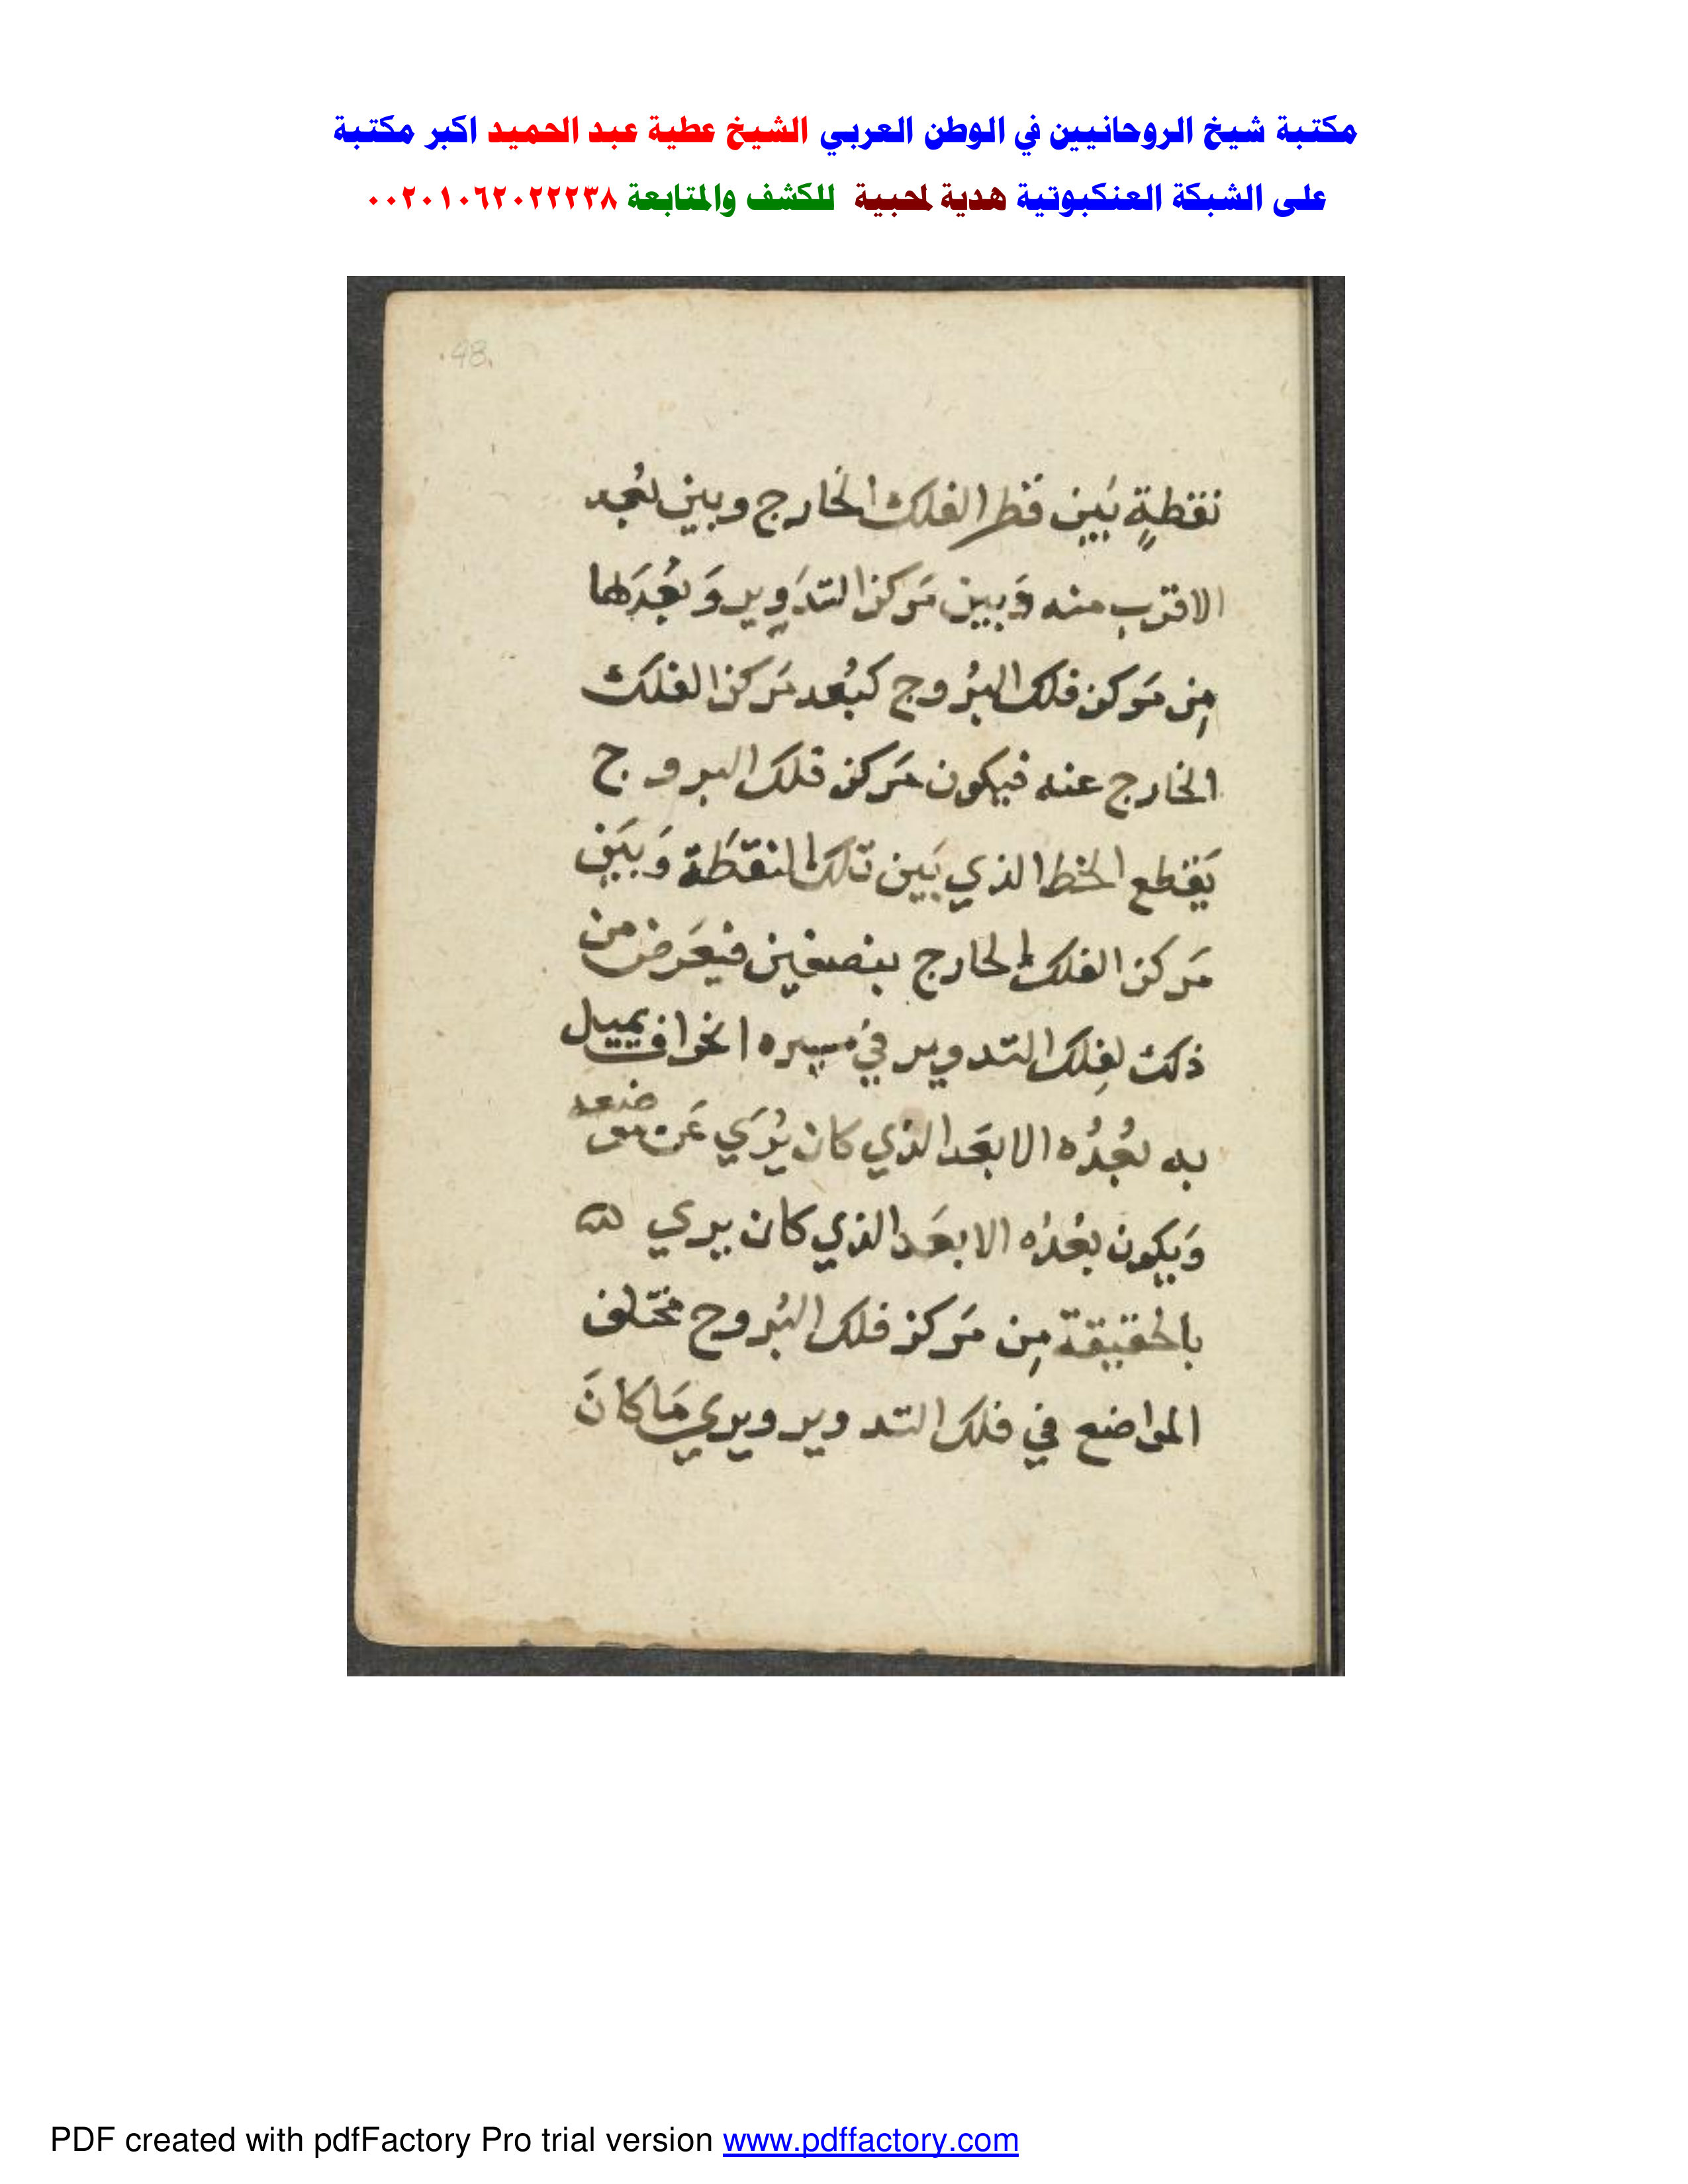 مكتبة شيخ الروحانيين في الوطن العربي الشيخ عطية عبد الحميد اكبر مكتبة
على الشبكة العنكبوتية هدية لمحبية للكشف والمتابعة ٠٠٢٠١٠٦٢٠٢٢٢٣٨
.48.
نقطةٍ بَين قطر الفلك الخارج وبين بُعد
الاقرب منه وَبين مَركز التدَوِير وَبُعدَها
مِن مَركز فلك البُروج كبُعد مَركز الفلك
الخارج عنه فيكون مَركز فلك البروج
يَقطع الخط الذي بَين تلك النقطَة وَبَين
مَركز الفلك الخارج بنصفين فيعَرض من
ذلك لِفلك التدوير في مسيره انحراف يميل
به بُعدُه الابعَد الذي كان يُرَي عَن موضعه
وَيكون بُعدُه الابعَد الذي كان يري
بالحقيقة مِن مَركز فلك البُروج مختَلف
المواضع في فلك التدوير ويري مَا كانَ
PDF created with pdfFactory Pro trial version www.pdffactory.com